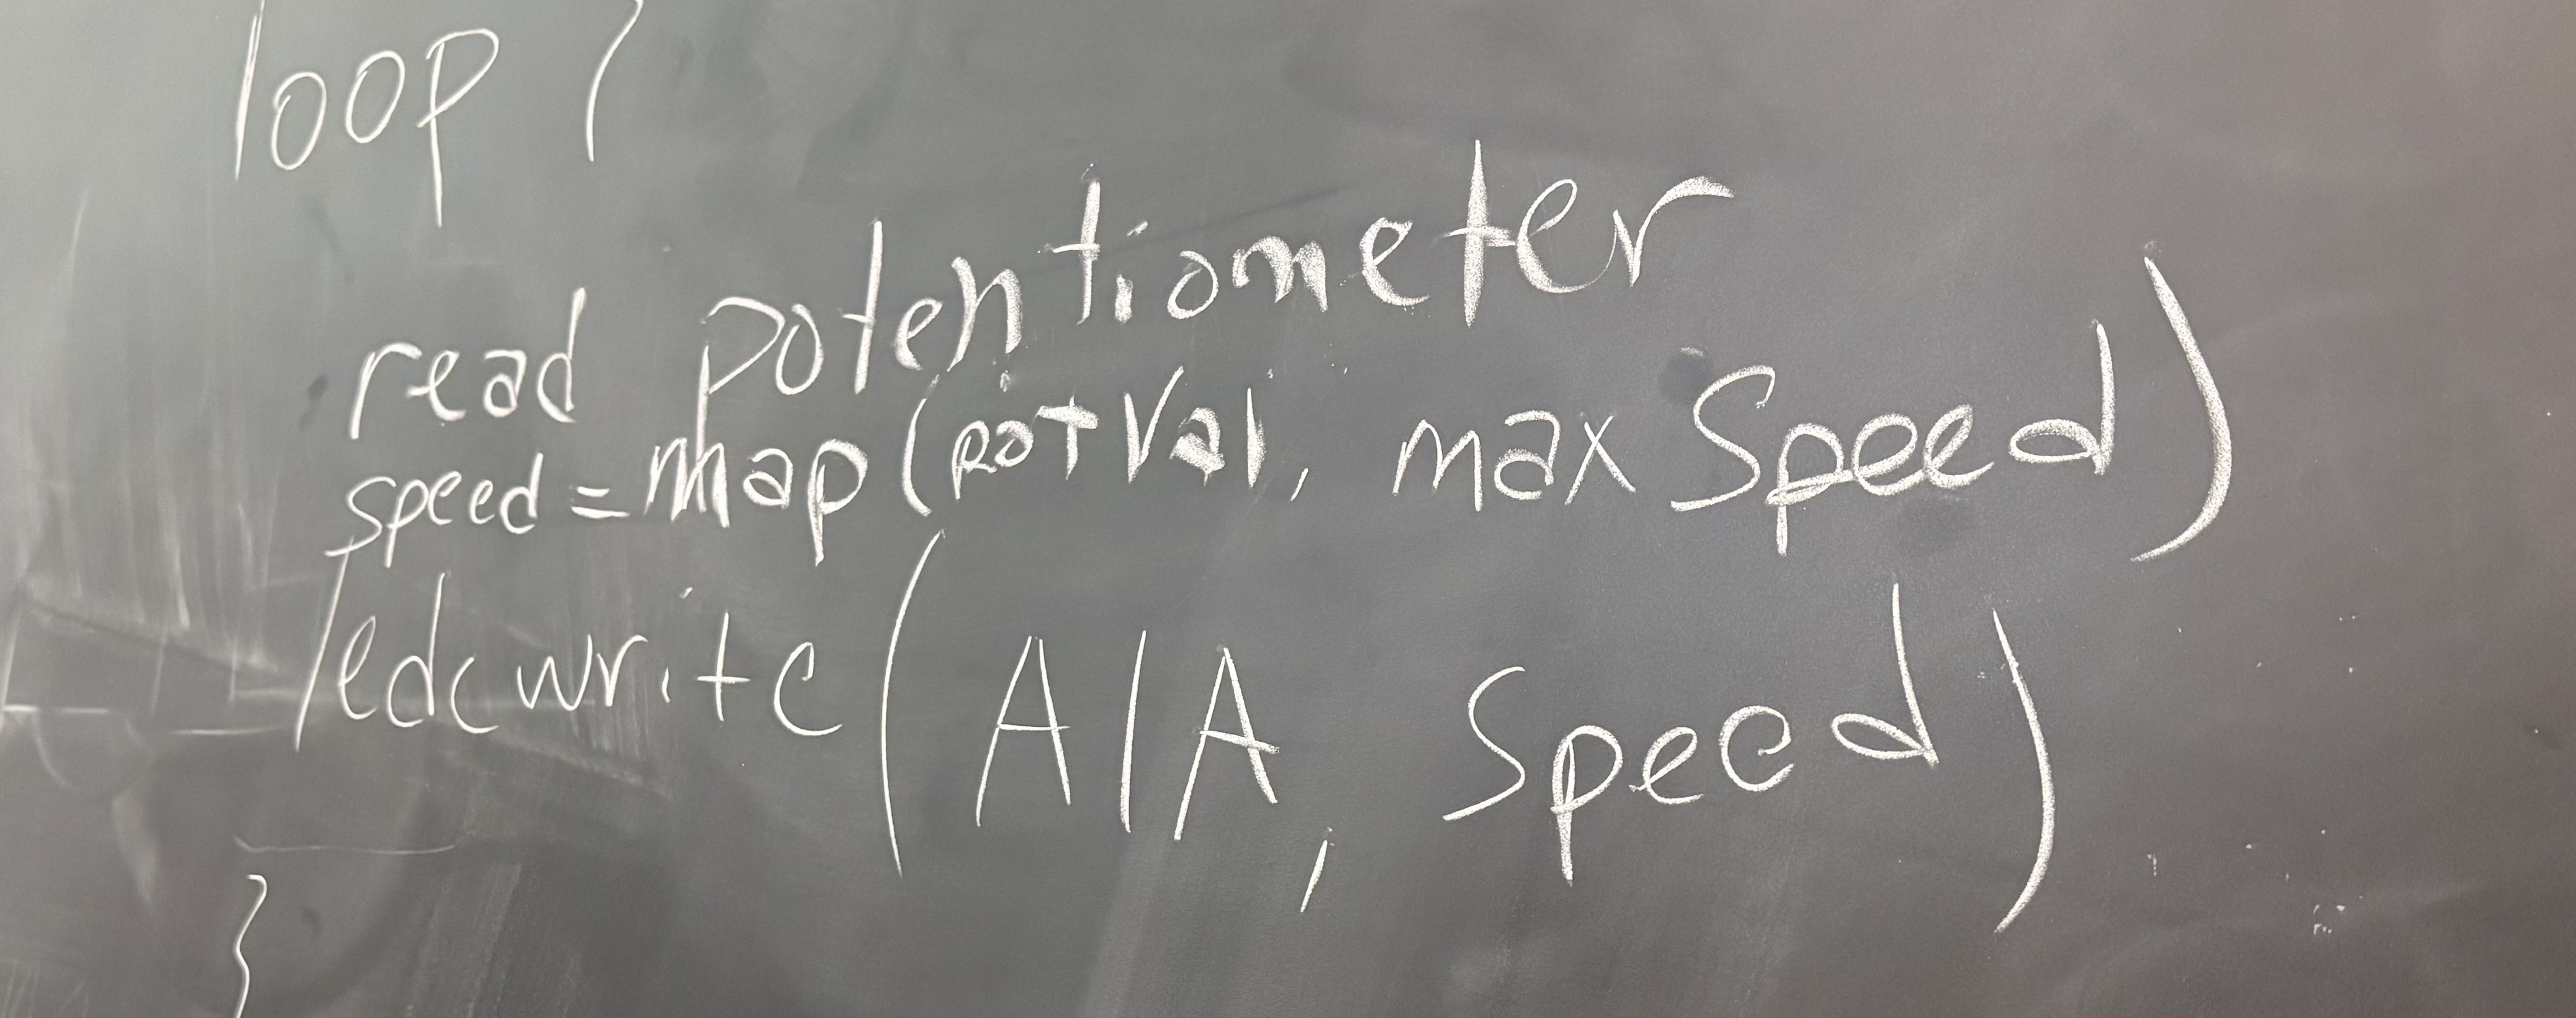 loop {
read potentiometer
speed = map(potVal, max Speed)
ledcwrite(A1A, Speed)
}